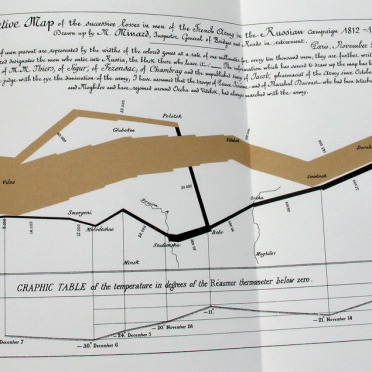 ative Map of the successive losses in men of the French Army in the Russian campaign 1812-1
Drawn up by M. Minard, Inspector General of Bridges and Roads in retirement. Paris, November
of men present are represented by the widths of the colored zones at a rate of one millimeter for every ten thousand men; they are further writ
red designates the men who enter into Russia, the black those who leave it. — The information which has served to draw up the map has b
of M.M. Thiers, of Ségur, of Fezensac, of Chambray and the unpublished diary of Jacob, pharmacist of the Army since October
judge with the eye the diminution of the army, I have assumed that the troops of Prince Jérôme and of Marshal Davout who had been detached
and Moghilev and have rejoined around Orcha and Vitebsk, had always marched with the army.
Polotsk
Gloubokoe
Vilna
Vitebsk
Smolensk
Smorgoni
Molodechno
Minsk
Studianka
Bobr
Orsha
Moghilev
GRAPHIC TABLE of the temperature in degrees of the Réaumur thermometer below zero.
December 7
-30.° December 6
-24.° December 1
-20.° November 28
-11.°
-21.° November 14